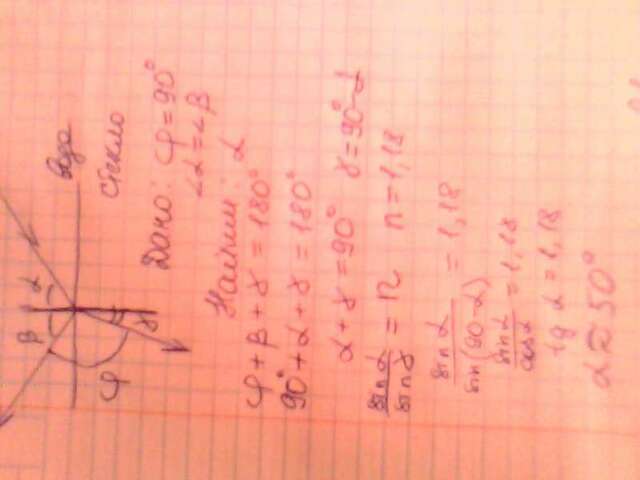 β α вода
φ γ стекло
Дано: φ=90°
∠α=∠β
Найти: α
φ+β+γ=180°
90°+α+γ=180°
α+γ=90° γ=90°-α
sinα/sinγ = n n=1,18
sinα/sin(90-α) = 1,18
sinα/cosα = 1,18
tg α = 1,18
α≈50°